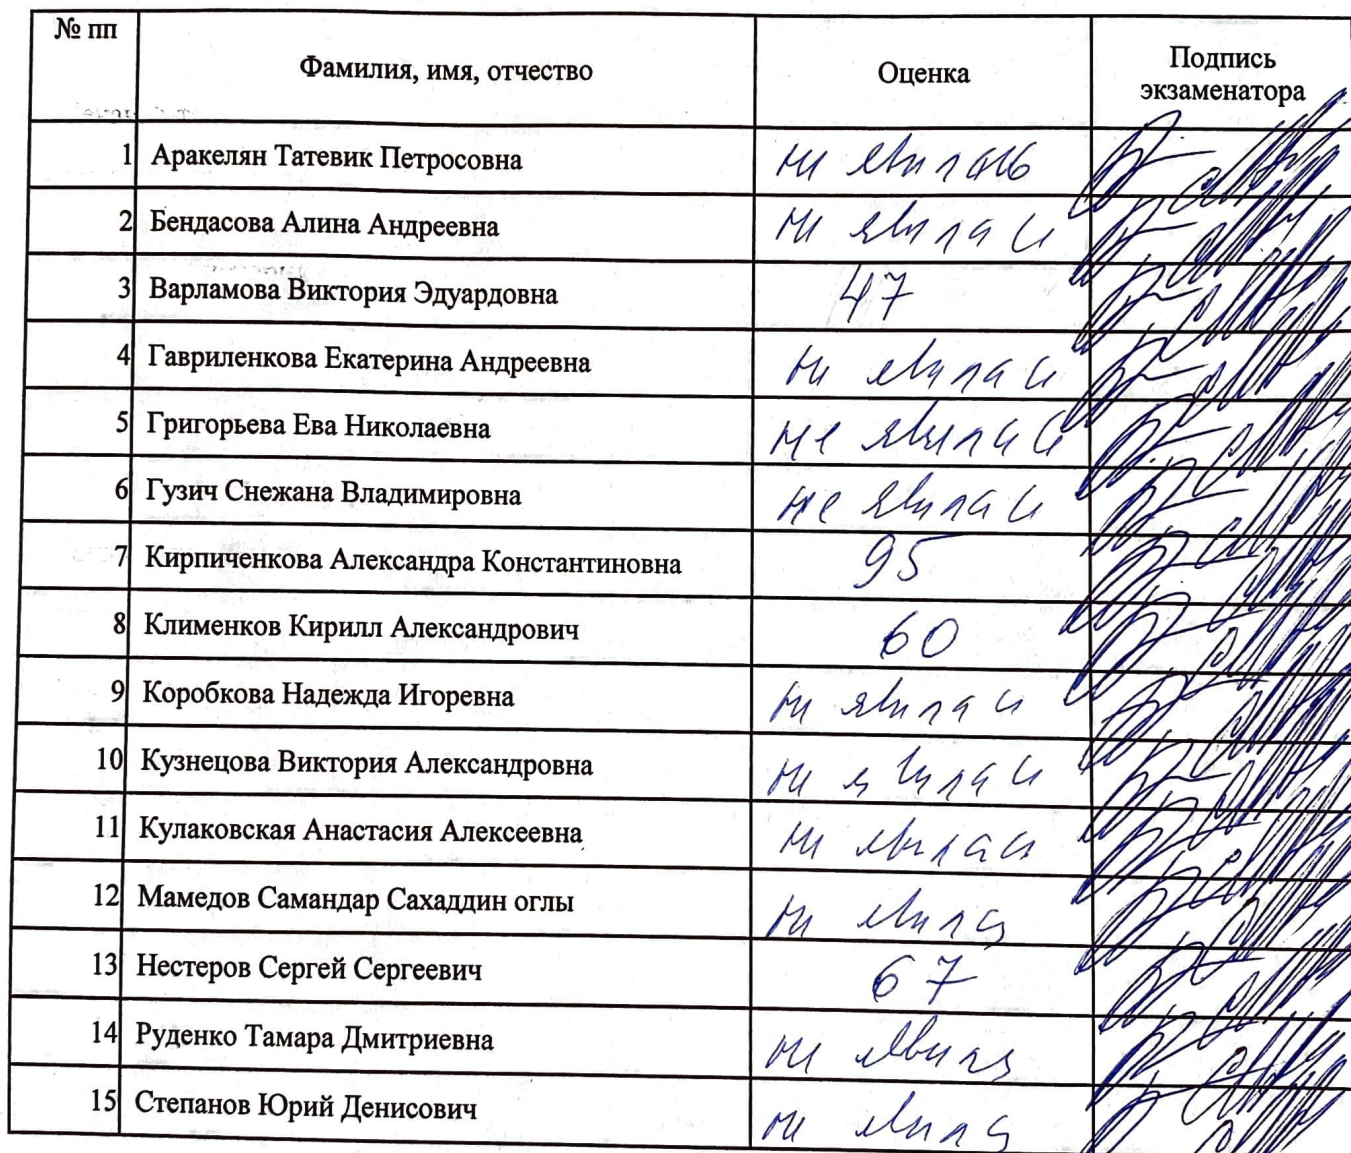 № пп Фамилия, имя, отчество Оценка Подпись экзаменатора
1 Аракелян Татевик Петросовна не явилась
2 Бендасова Алина Андреевна не явилась
3 Варламова Виктория Эдуардовна 47
4 Гавриленкова Екатерина Андреевна не явилась
5 Григорьева Ева Николаевна не явилась
6 Гузич Снежана Владимировна не явилась
7 Кирпиченкова Александра Константиновна 95
8 Клименков Кирилл Александрович 60
9 Коробкова Надежда Игоревна не явилась
10 Кузнецова Виктория Александровна не явилась
11 Кулаковская Анастасия Алексеевна не явилась
12 Мамедов Самандар Сахаддин оглы не явился
13 Нестеров Сергей Сергеевич 67
14 Руденко Тамара Дмитриевна не
15 Степанов Юрий Денисович не явился